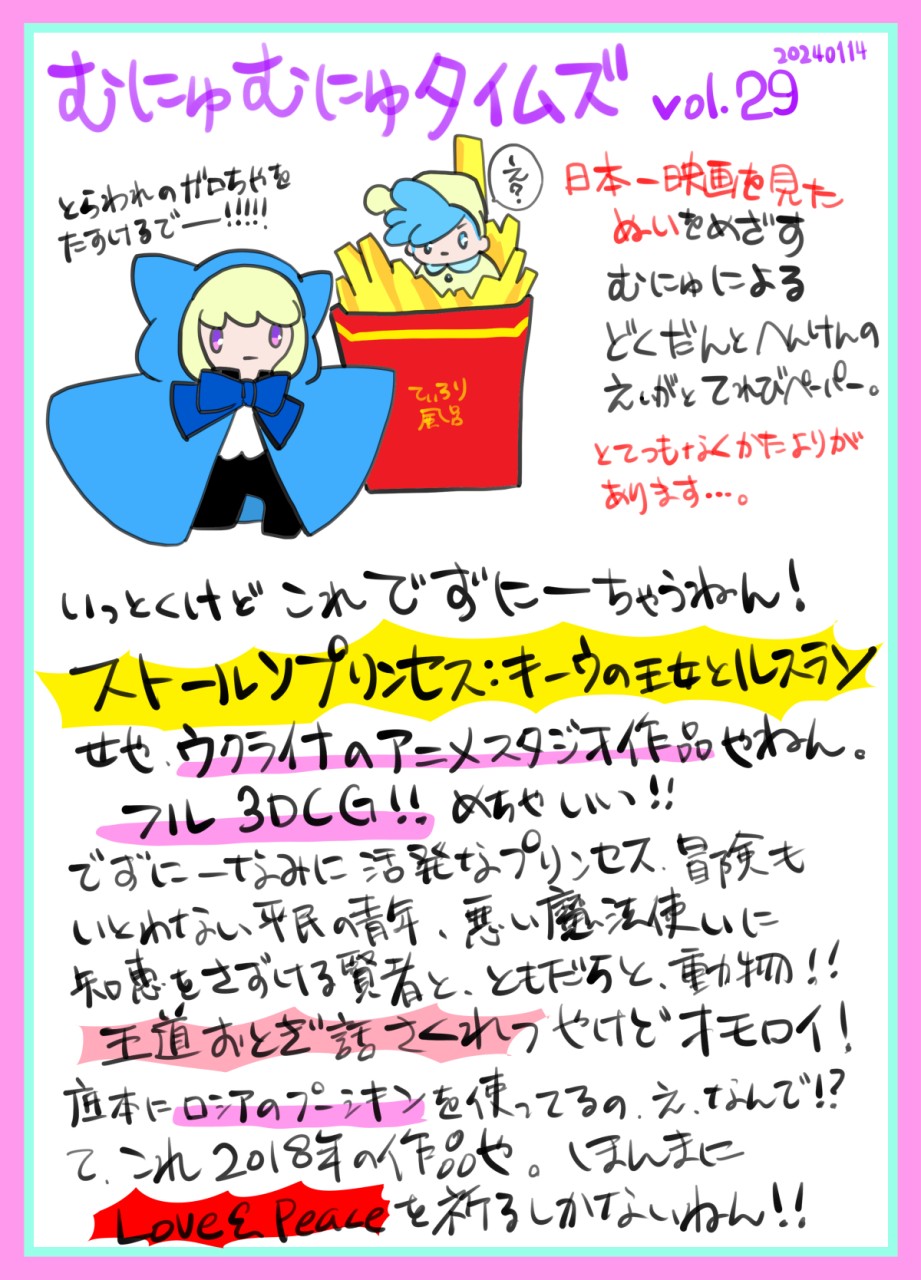 20240114
むにゅむにゅタイムズ vol.29
とらわれのガロちゃを
たすけるでー!!!!!
え?
てぃろり
風呂
日本一映画を見た
ぬいをめざす
むにゅによる
どくだんとへんけんの
えいがとてれびペーパー。
とてつもなくかたよりが
あります…。
いっとくけど これ でずにーちゃうねん!
ストールンプリンセス:キーウの王女とルスラン
せや、ウクライナのアニメスタジオ作品やねん。
フル 3DCG!! めちゃいい!!
でずにーなみに 活発なプリンセス、冒険も
いとわない平民の青年、悪い魔法使いに
知恵をさずける賢者と、ともだちと、動物!!
王道おとぎ話さくれつやけどオモロイ!
底本にロシアのプーシキンを使ってるの、え、なんで!?
て、これ 2018年の作品や。ほんまに
Love & Peaceを祈るしかないねん!!